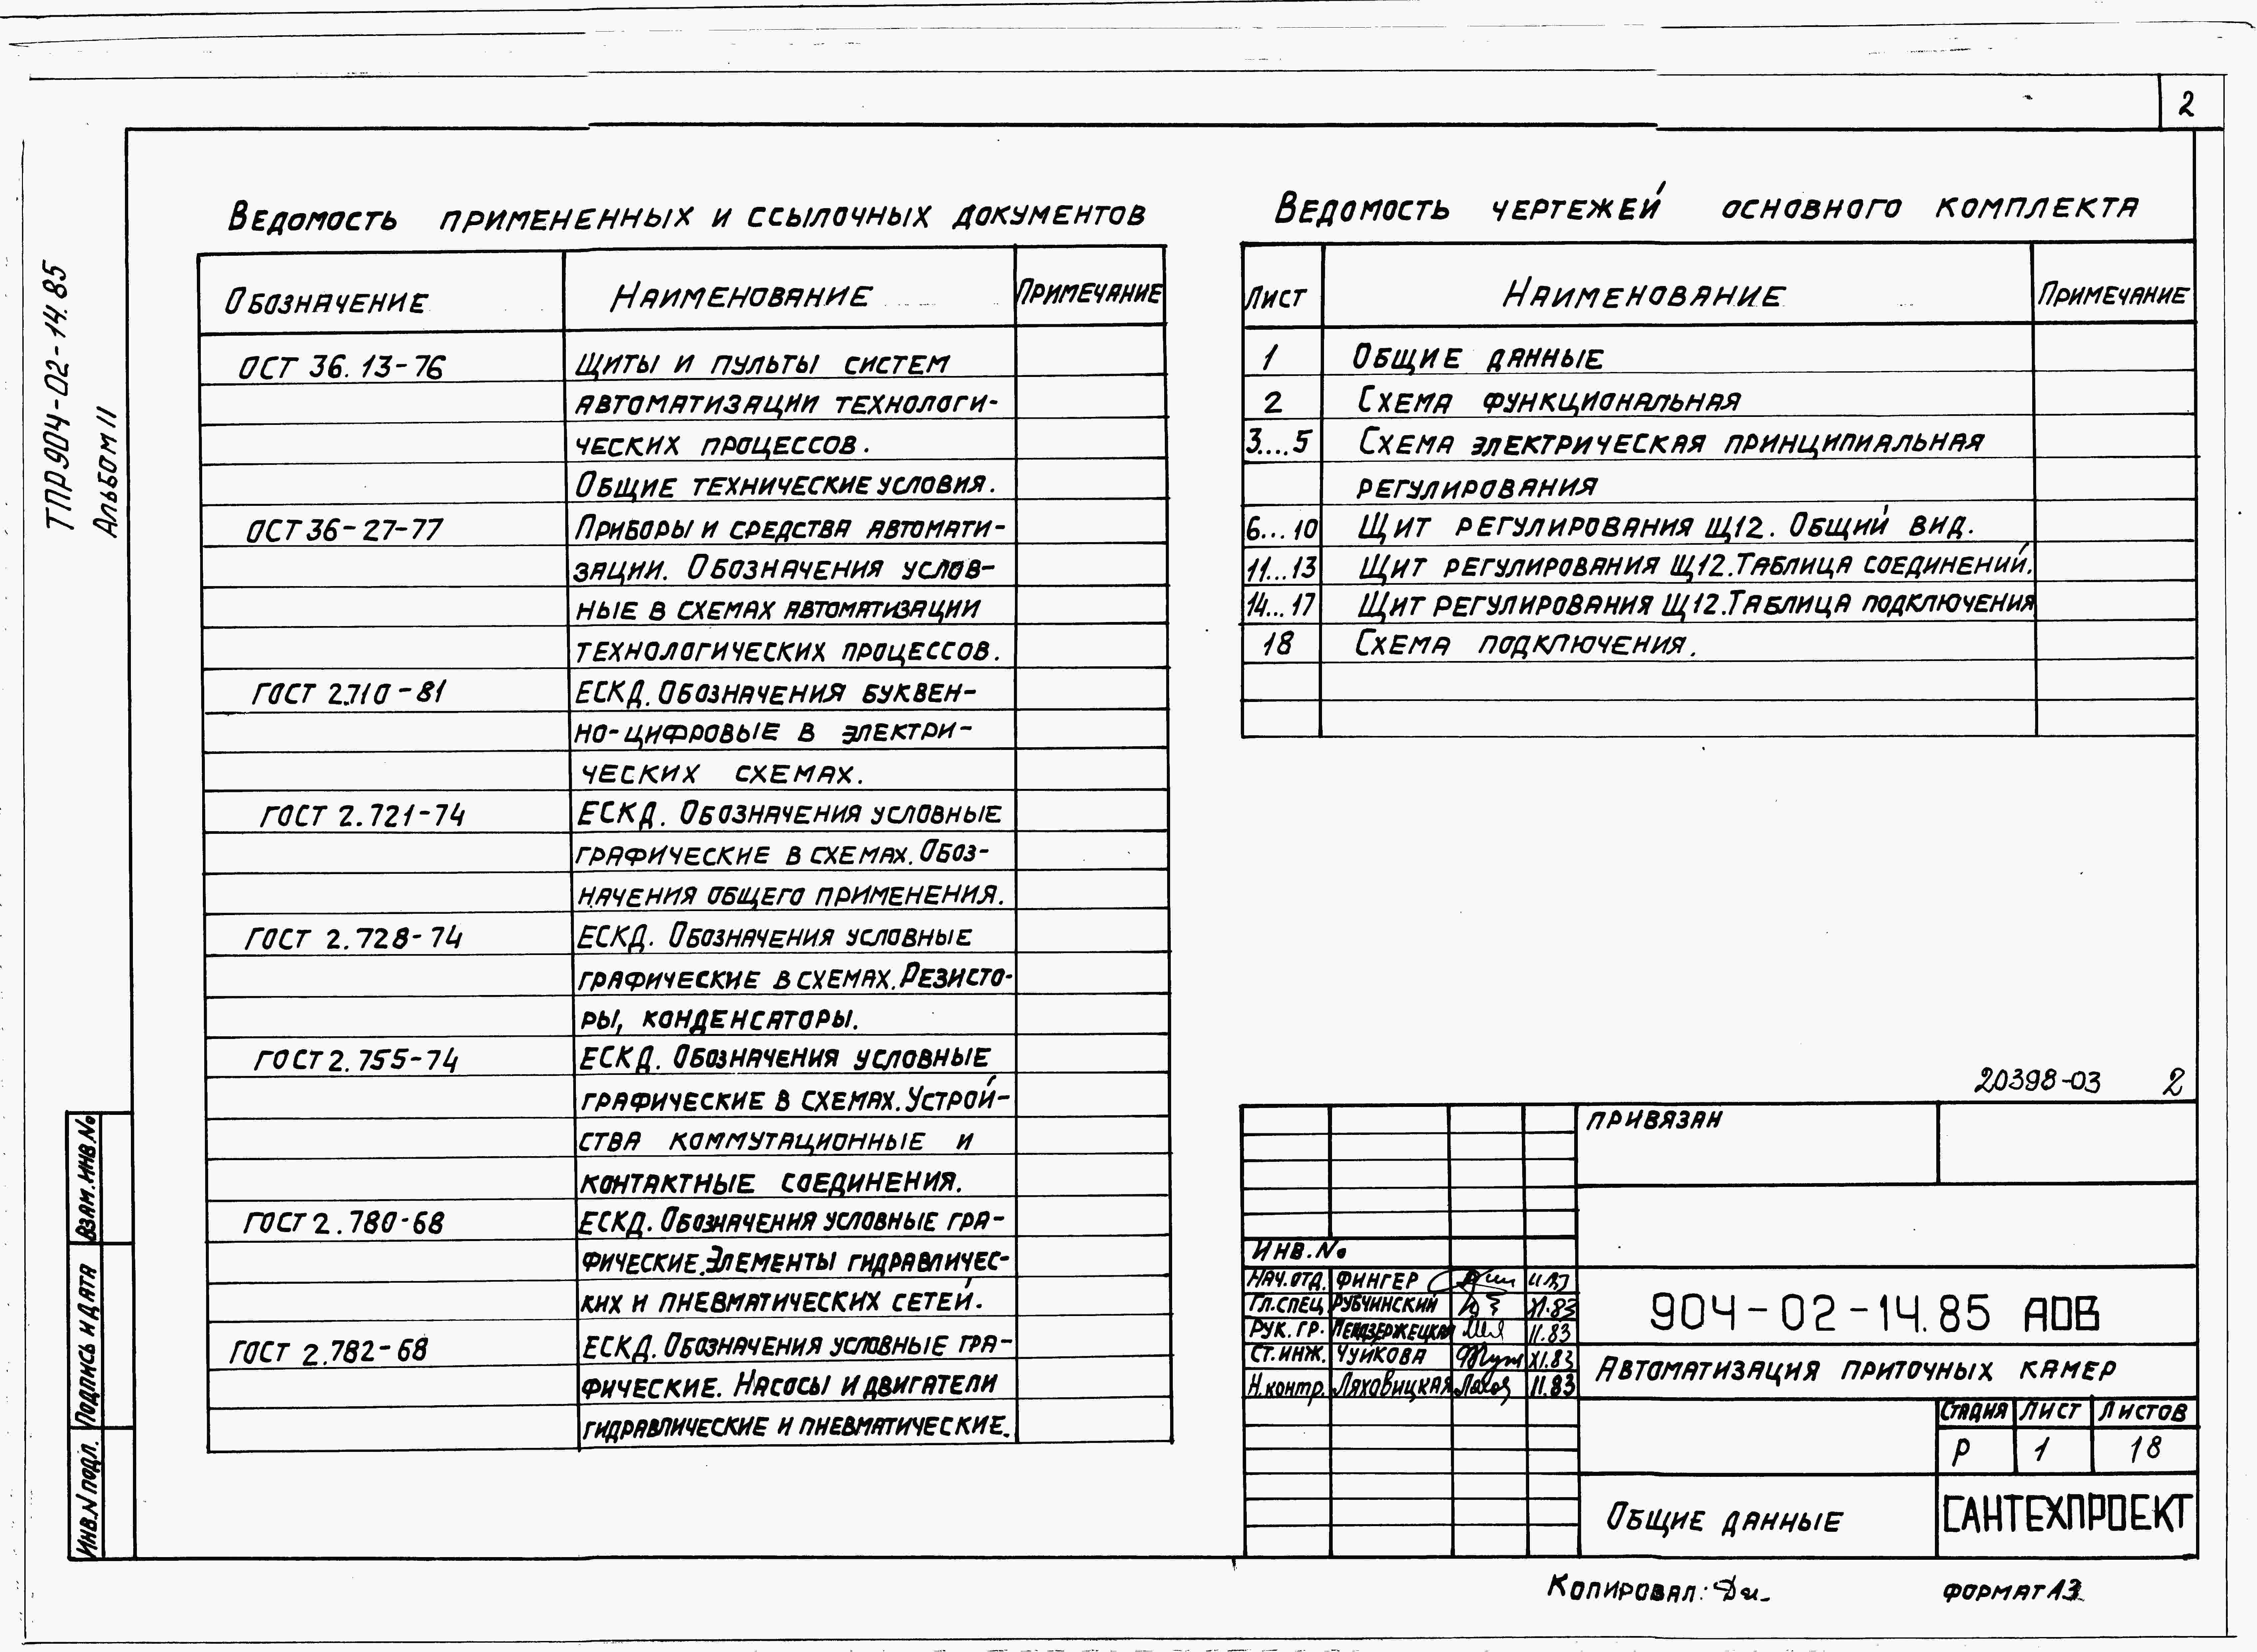 2
ТПР 904-02-14.85
Альбом II
Ведомость примененных и ссылочных документов
Обозначение Наименование Примечание
ОСТ 36.13-76 Щиты и пульты систем
автоматизации технологи-
ческих процессов.
Общие технические условия.
ОСТ 36-27-77 Приборы и средства автомати-
зации. Обозначения услов-
ные в схемах автоматизации
технологических процессов.
ГОСТ 2.710-81 ЕСКД. Обозначения буквен-
но-цифровые в электри-
ческих схемах.
ГОСТ 2.721-74 ЕСКД. Обозначения условные
графические в схемах. Обоз-
начения общего применения.
ГОСТ 2.728-74 ЕСКД. Обозначения условные
графические в схемах. Резисто-
ры, конденсаторы.
ГОСТ 2.755-74 ЕСКД. Обозначения условные
графические в схемах. Устрой-
ства коммутационные и
контактные соединения.
ГОСТ 2.780-68 ЕСКД. Обозначения условные гра-
фические. Элементы гидравличес-
ких и пневматических сетей.
ГОСТ 2.782-68 ЕСКД. Обозначения условные гра-
фические. Насосы и двигатели
гидравлические и пневматические.
Ведомость чертежей основного комплекта
Лист Наименование Примечание
1 Общие данные
2 Схема функциональная
3....5 Схема электрическая принципиальная
регулирования
6...10 Щит регулирования Щ12. Общий вид.
11...13 Щит регулирования Щ12. Таблица соединений.
14...17 Щит регулирования Щ12. Таблица подключения
18 Схема подключения.
20398-03 2
Привязан
Инв. №
Нач. отд. Фингер
Гл. спец. Рубчинский XI.83
Рук. гр. 11.83
Ст. инж. Чуйкова XI.83
Н. контр. Ляховицкая 11.83
904-02-14.85 АОВ
Автоматизация приточных камер
Стадия Лист Листов
Р 1 18
Общие данные
САНТЕХПРОЕКТ
Взам. инв. №
Подпись и дата
Инв. N подл.
Копировал:
Формат А3